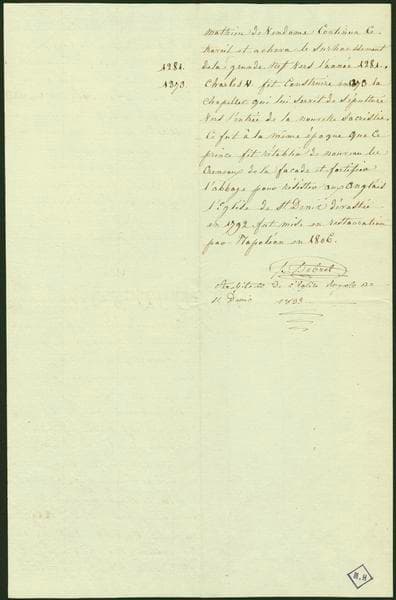 mathieu de Vendome Continua Ce
travail et acheva le Surhaussement
1281. de la grande Nef Vers l'année 1281.
1373. Charles V. fit Construire en 1373 la
Chapelle qui lui servit de Sépulture
Vers l'entrée de la nouvelle Sacristie.
Ce fut à la même époque que Ce
prince fit rétablir de nouveau les
Creneaux de la façade et fortifia
l'abbaye pour résister aux Anglais
l'Eglise de St Denis dévastée
en 1792 fut mise en restauration
par Napoléon en 1806.
Debret
de l'Eglise Royale de
St Denis
H.H